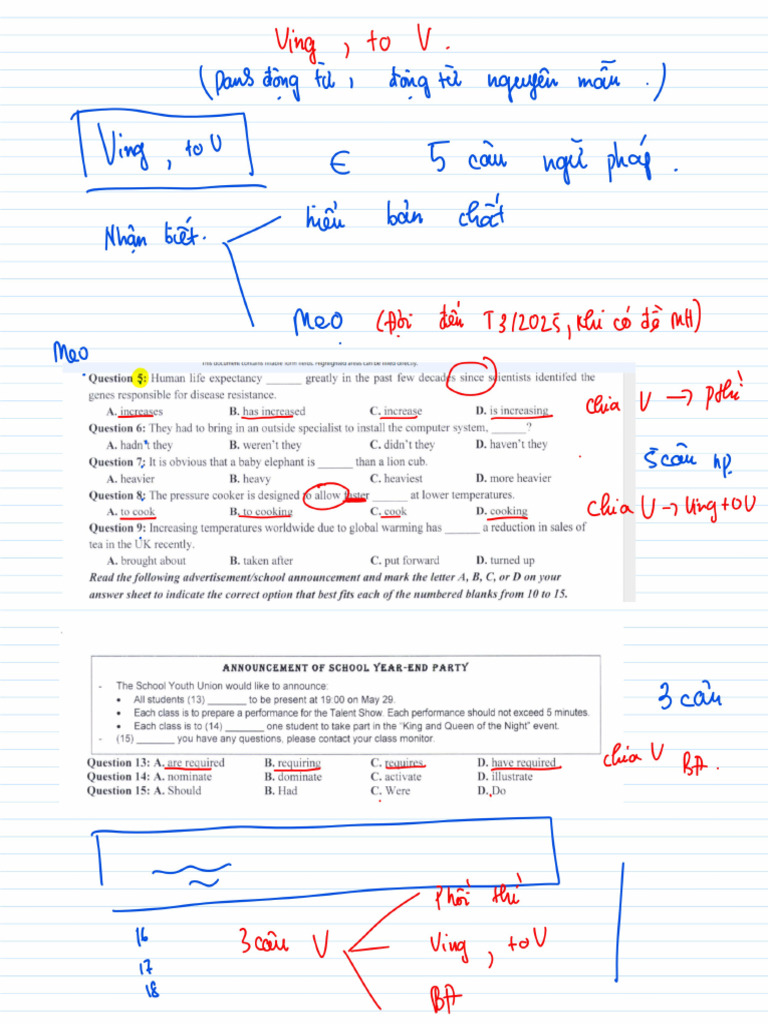 Ving, to V.
(Danh động từ, động từ nguyên mẫu.)
Ving, to V ∈ 5 câu ngữ pháp.
Nhận biết.
hiểu bản chất
Mẹo (Đợi đến T3/2025, khi có đề MH)
Mẹo
This document contains fillable form fields. Highlighted areas can be filled directly.
Question 5: Human life expectancy ______ greatly in the past few decades since scientists identifed the
genes responsible for disease resistance.
A. increases B. has increased C. increase D. is increasing
chia V → phối thì
Question 6: They had to bring in an outside specialist to install the computer system, ______?
A. hadn't they B. weren't they C. didn't they D. haven't they
5 câu np.
Question 7: It is obvious that a baby elephant is ______ than a lion cub.
A. heavier B. heavy C. heaviest D. more heavier
Question 8: The pressure cooker is designed to allow faster ______ at lower temperatures.
A. to cook B. to cooking C. cook D. cooking
chia V → Ving to V
Question 9: Increasing temperatures worldwide due to global warming has ______ a reduction in sales of
tea in the UK recently.
A. brought about B. taken after C. put forward D. turned up
Read the following advertisement/school announcement and mark the letter A, B, C, or D on your
answer sheet to indicate the correct option that best fits each of the numbered blanks from 10 to 15.
ANNOUNCEMENT OF SCHOOL YEAR-END PARTY
- The School Youth Union would like to announce:
• All students (13) ________ to be present at 19:00 on May 29.
• Each class is to prepare a performance for the Talent Show. Each performance should not exceed 5 minutes.
• Each class is to (14) ________ one student to take part in the "King and Queen of the Night" event.
- (15) ________ you have any questions, please contact your class monitor.
3 câu
chia V BĐ.
Question 13: A. are required B. requiring C. requires D. have required
Question 14: A. nominate B. dominate C. activate D. illustrate
Question 15: A. Should B. Had C. Were D. Do
16
17
18
3 câu V
Phối thì
Ving, to V
BĐ